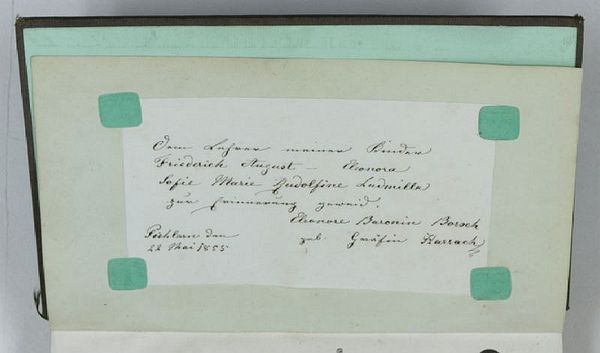 Dem Lehrer meiner Kinder
Friedrich August – Eleonora
Sofie Marie Rudolfine Ludmilla
zur Erinnerung geweid.
Eleonore Baronin Borsch
geb. Gräfin Harrach
Pöchlarn den
22 Mai 1855